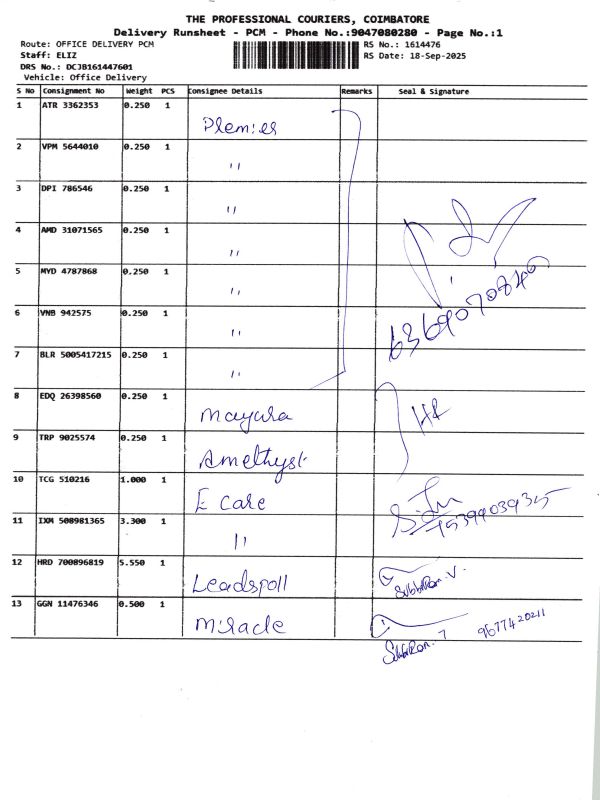 THE PROFESSIONAL COURIERS, COIMBATORE
Delivery Runsheet - PCM - Phone No.:9047080280 - Page No.:1
Route: OFFICE DELIVERY PCM
Staff: ELIZ
DRS No.: DCJB161447601
Vehicle: Office Delivery
RS No.: 1614476
RS Date: 18-Sep-2025
S No Consignment No Weight PCS Consignee Details Remarks Seal & Signature
1 ATR 3362353 0.250 1 Plemier
2 VPM 5644010 0.250 1 "
3 DPI 786546 0.250 1 "
4 AMD 31071565 0.250 1 "
5 MYD 4787868 0.250 1 "
6 VNB 942575 0.250 1 "
7 BLR 5005417215 0.250 1 "
6369070840
8 EDQ 26398560 0.250 1 Mayura
HR
9 TRP 9025574 0.250 1 Amethyst
10 TCG 510216 1.000 1 E care
11 IXM 508981365 3.300 1 "
12 HRD 700896819 5.550 1 Leadspoll
13 GGN 11476346 0.500 1 Miracle
9677420211